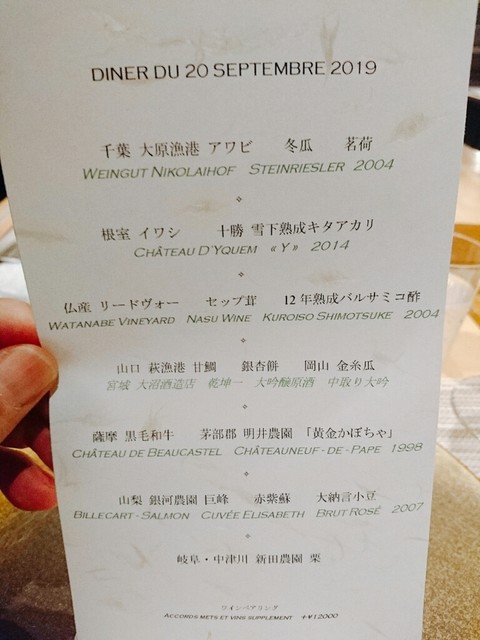 DINER DU 20 SEPTEMBRE 2019
千葉 大原漁港 アワビ 冬瓜 茗荷
WEINGUT NIKOLAIHOF STEINRIESLER 2004
根室 イワシ 十勝 雪下熟成キタアカリ
CHÂTEAU D'YQUEM « Y » 2014
仏産 リードヴォー セップ茸 12年熟成バルサミコ酢
WATANABE VINEYARD NASU WINE KUROISO SHIMOTSUKE 2004
山口 萩漁港 甘鯛 銀杏餅 岡山 金糸瓜
宮城 大沼酒造店 乾坤一 大吟醸原酒 中取り大吟
薩摩 黒毛和牛 茅部郡 明井農園 「黄金かぼちゃ」
CHÂTEAU DE BEAUCASTEL CHÂTEAUNEUF-DE-PAPE 1998
山梨 銀河農園 巨峰 赤紫蘇 大納言小豆
BILLECART-SALMON CUVÉE ELISABETH BRUT ROSÉ 2007
岐阜・中津川 新田農園 栗
ワインペアリング
ACCORDS METS ET VINS SUPPLEMENT +¥12000